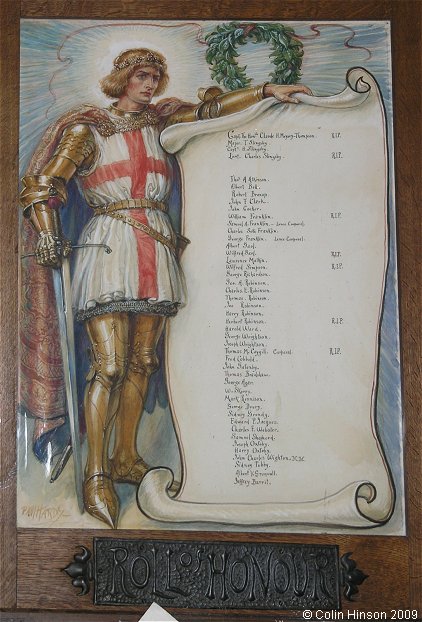 Capt. The Honble Claude H. Meysey-Thompson. R.I.P.
Major. T. Slingsby.
Capt. A. Slingsby.
Lieut. Charles Slingsby. R.I.P.
Thos A. Atkinson.
Albert Bell.
Robert
John T. Clark.
John Corker.
William Franklin. R.I.P.
Samuel A. Franklin. — Lance Corporal.
Charles Franklin.
George Franklin. Lance Corporal.
Albert
Wilfred R.I.P.
Lawrence
Wilfred Simpson. R.I.P.
George Richardson.
Geo. H. Robinson.
Charles E. Robinson.
Thomas. Robinson.
Joe Robinson.
Harry Robinson.
Herbert Robinson. R.I.P.
Harold Ward.
George Wrightson.
Joseph Wrightson.
Thomas Corporal R.I.P.
Fred
John
Thomas Bradshaw.
George
Wm
Mark Kennison.
George Drury.
Sidney
Edward F. Jacques.
Charles F. Webster.
Samuel Shepherd.
Joseph Oxtoby.
Harry Oxtoby.
John Charles Wighton.
Sidney Tebby.
Albert
Jeffrey Barrit.
ROLL OF HONOUR
© Colin Hinson 2009